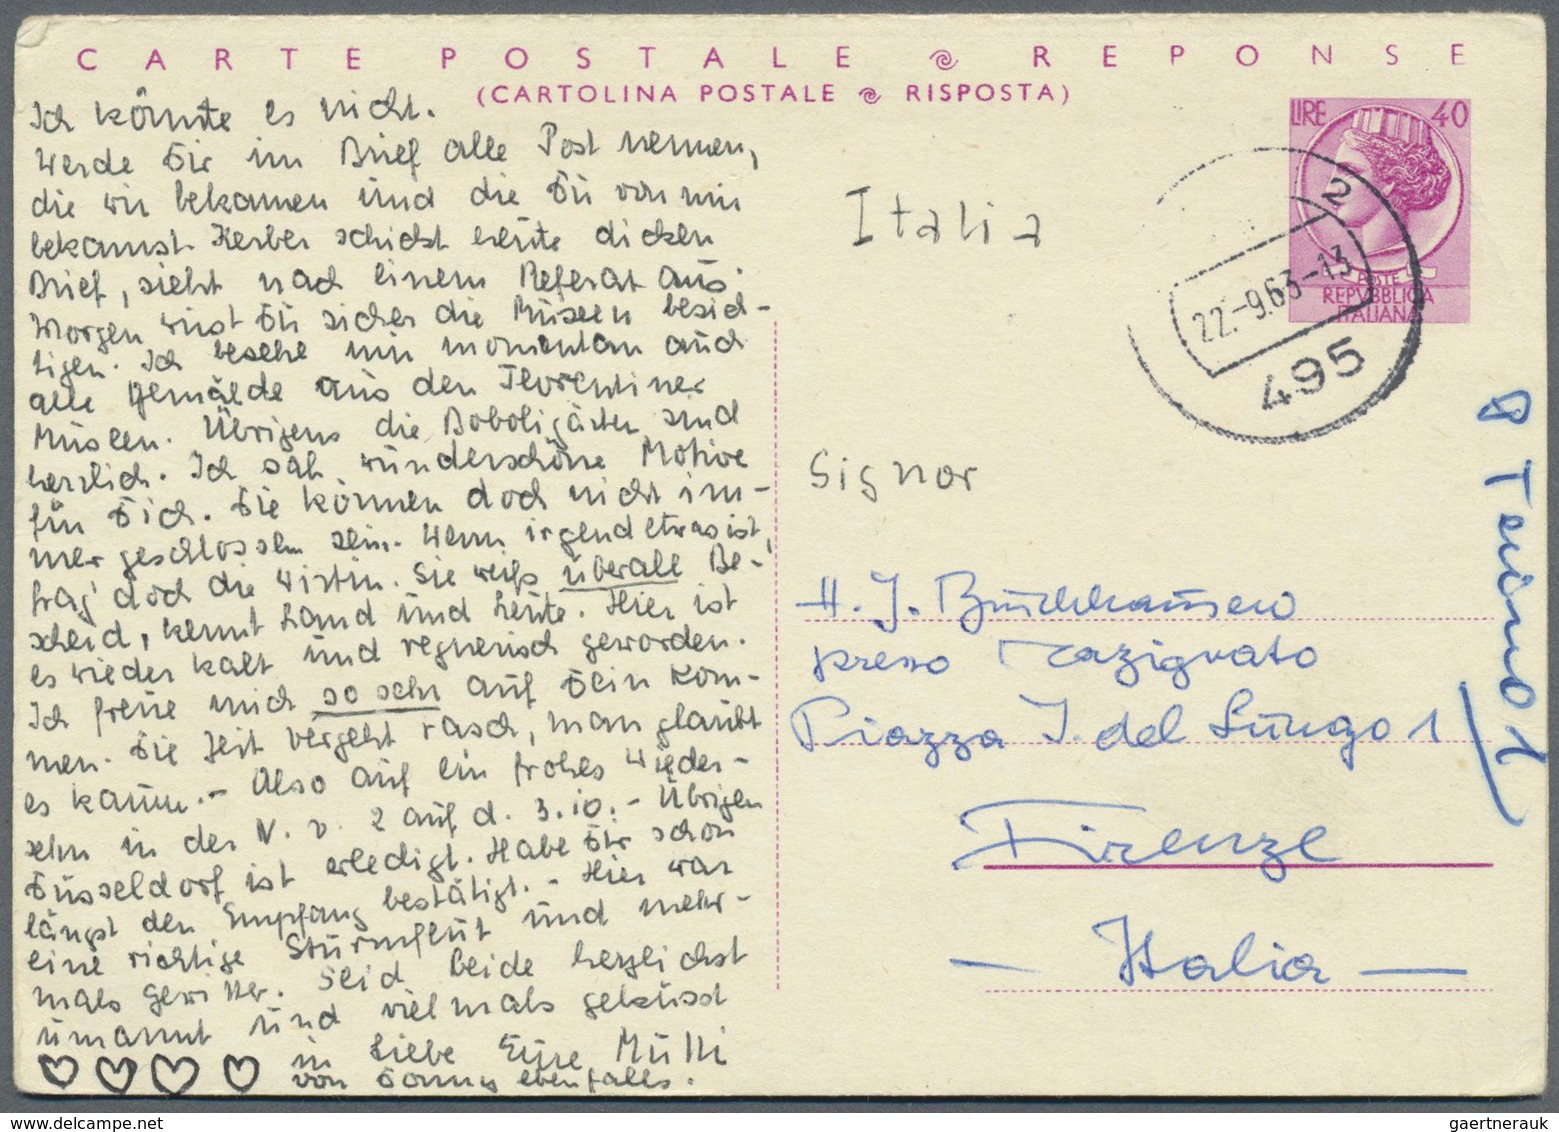 CARTE POSTALE REPONSE
(CARTOLINA POSTALE RISPOSTA)
Ich könnte es nicht.
Werde Dir im Brief alle Post nennen,
die wir bekamen und die Du von mir
bekamst. Kerber schickt heute dicken
Brief, sieht nach einem Referat aus.
Morgen wirst Du sicher die Museen besich-
tigen. Ich besehe mir momentan auch
alle Gemälde aus den Florentiner
Museen. Übrigens die Boboligärten sind
herrlich. Ich sah wunderschöne Motive
für Dich. Die können doch nicht im-
mer geschlossen sein. Wenn irgend etwas ist,
frag' doch die Wirtin. Sie weiß überall Be-
scheid, kennt Land und Leute. Hier ist
es wieder kalt und regnerisch geworden.
Ich freue mich so sehr auf Dein Kom-
men. Die Zeit vergeht rasch, man glaubt
es kaum. - Also auf ein frohes Wieder-
sehn in der N. v. 2 auf d. 3. 10. - Übrigen
Düsseldorf ist erledigt. Habe Dir schon
längst den Empfang bestätigt. - Hier war
eine richtige Sturmflut und mehr-
mals Gewitter. Seid beide herzlichst
umarmt und vielmals geküsst
in Liebe Eure Mutti
von ebenfalls.
LIRE 40
POSTE
REPVBBLICA
ITALIANA
2
22.-9.63-13
495
Italia
Signor
H. J.
Piazza J. del Lungo 1
Firenze
- Italia -
gaertnerauk